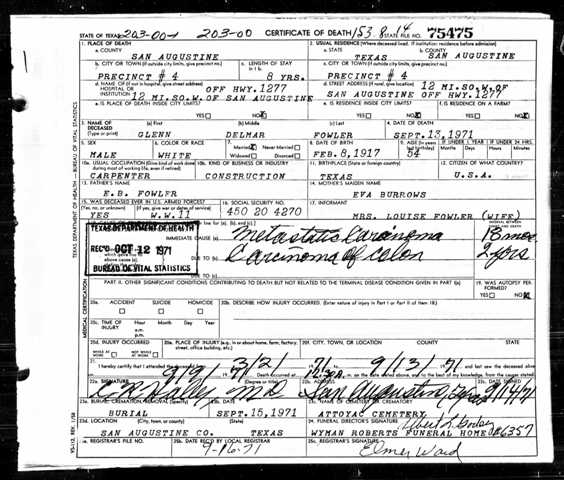 STATE OF TEXAS 203-00-1 203-00 CERTIFICATE OF DEATH 153 8 14 STATE FILE NO. 75475
1. PLACE OF DEATH 2. USUAL RESIDENCE (Where deceased lived. If institution: residence before admission)
a. COUNTY SAN AUGUSTINE a. STATE TEXAS b. COUNTY SAN AUGUSTINE
b. CITY OR TOWN (If outside city limits, give precinct no.) c. LENGTH OF STAY in 1 b. c. CITY OR TOWN (If outside city limits, give precinct no.)
PRECINCT # 4 8 YRS. PRECINCT # 4
d. NAME OF (If not in hospital, give street address) HOSPITAL OR INSTITUTION OFF HWY. 1277 12 MI. SO. W. OF SAN AUGUSTINE
d. STREET ADDRESS (If rural, give location) 12 MI. SO. W. OF SAN AUGUSTINE OFF HWY. 1277
e. IS PLACE OF DEATH INSIDE CITY LIMITS? YES NO e. IS RESIDENCE INSIDE CITY LIMITS? YES NO f. IS RESIDENCE ON A FARM? YES NO
3. NAME OF DECEASED (Type or print) (a) First (b) Middle (c) Last 4. DATE OF DEATH
GLENN DELMAR FOWLER SEPT. 13, 1971
5. SEX 6. COLOR OR RACE 7. Married Never Married Widowed Divorced 8. DATE OF BIRTH 9. AGE (In years last birthday) IF UNDER 1 YEAR IF UNDER 24 HRS. Months Days Hours Min.
MALE WHITE FEB. 8, 1917 54
10a. USUAL OCCUPATION (Give kind of work done during most of working life, even if retired) 10b. KIND OF BUSINESS OR INDUSTRY 11. BIRTHPLACE (State or foreign country) 12. CITIZEN OF WHAT COUNTRY?
CARPENTER CONSTRUCTION TEXAS U.S.A.
13. FATHER'S NAME 14. MOTHER'S MAIDEN NAME
E.B. FOWLER EVA BURROWS
15. WAS DECEASED EVER IN U.S. ARMED FORCES? 16. SOCIAL SECURITY NO. 17. INFORMANT
YES W.W.11 450 20 4270 MRS. LOUISE FOWLER (WIFE)
TEXAS DEPARTMENT OF HEALTH
REC'D OCT 12 1971
BUREAU OF VITAL STATISTICS
IMMEDIATE CAUSE (a) Metastatic Carcinoma 18 mos
DUE TO (b) Carcinoma of colon 2 yrs
DUE TO (c)
PART II. OTHER SIGNIFICANT CONDITIONS CONTRIBUTING TO DEATH BUT NOT RELATED TO THE TERMINAL DISEASE CONDITION GIVEN IN PART I(a) 19. WAS AUTOPSY PERFORMED? YES NO
20a. ACCIDENT SUICIDE HOMICIDE 20b. DESCRIBE HOW INJURY OCCURRED. (Enter nature of injury in Part I or Part II of item 18)
20c. TIME OF INJURY Hour Month Day Year
20d. INJURY OCCURRED WHILE AT WORK NOT WHILE AT WORK 20e. PLACE OF INJURY (e.g. in or about home, farm, factory, street, office building, etc.) 20f. CITY, TOWN, OR LOCATION COUNTY STATE
21. I hereby certify that I attended the deceased from 3/21 71 9/13 71
22a. SIGNATURE (Degree or title) 22b. ADDRESS 22c. DATE SIGNED
MD San Augustine, Texas 9/14/71
23a. BURIAL, CREMATION, REMOVAL (Specify) 23b. DATE 23c. NAME OF CEMETERY OR CREMATORY
BURIAL SEPT. 15, 1971 ATTOYAC CEMETERY
23d. LOCATION (City, town, or county) (State) 24. FUNERAL DIRECTOR'S SIGNATURE
SAN AUGUSTINE CO. TEXAS WYMAN ROBERTS FUNERAL HOME #6357
25a. REGISTRAR'S FILE NO. 25b. DATE REC'D BY LOCAL REGISTRAR 25c. REGISTRAR'S SIGNATURE
9-16-71 Elmer Ward
TEXAS DEPARTMENT OF HEALTH — BUREAU OF VITAL STATISTICS
MEDICAL CERTIFICATION
VS-112, REV. 1/58